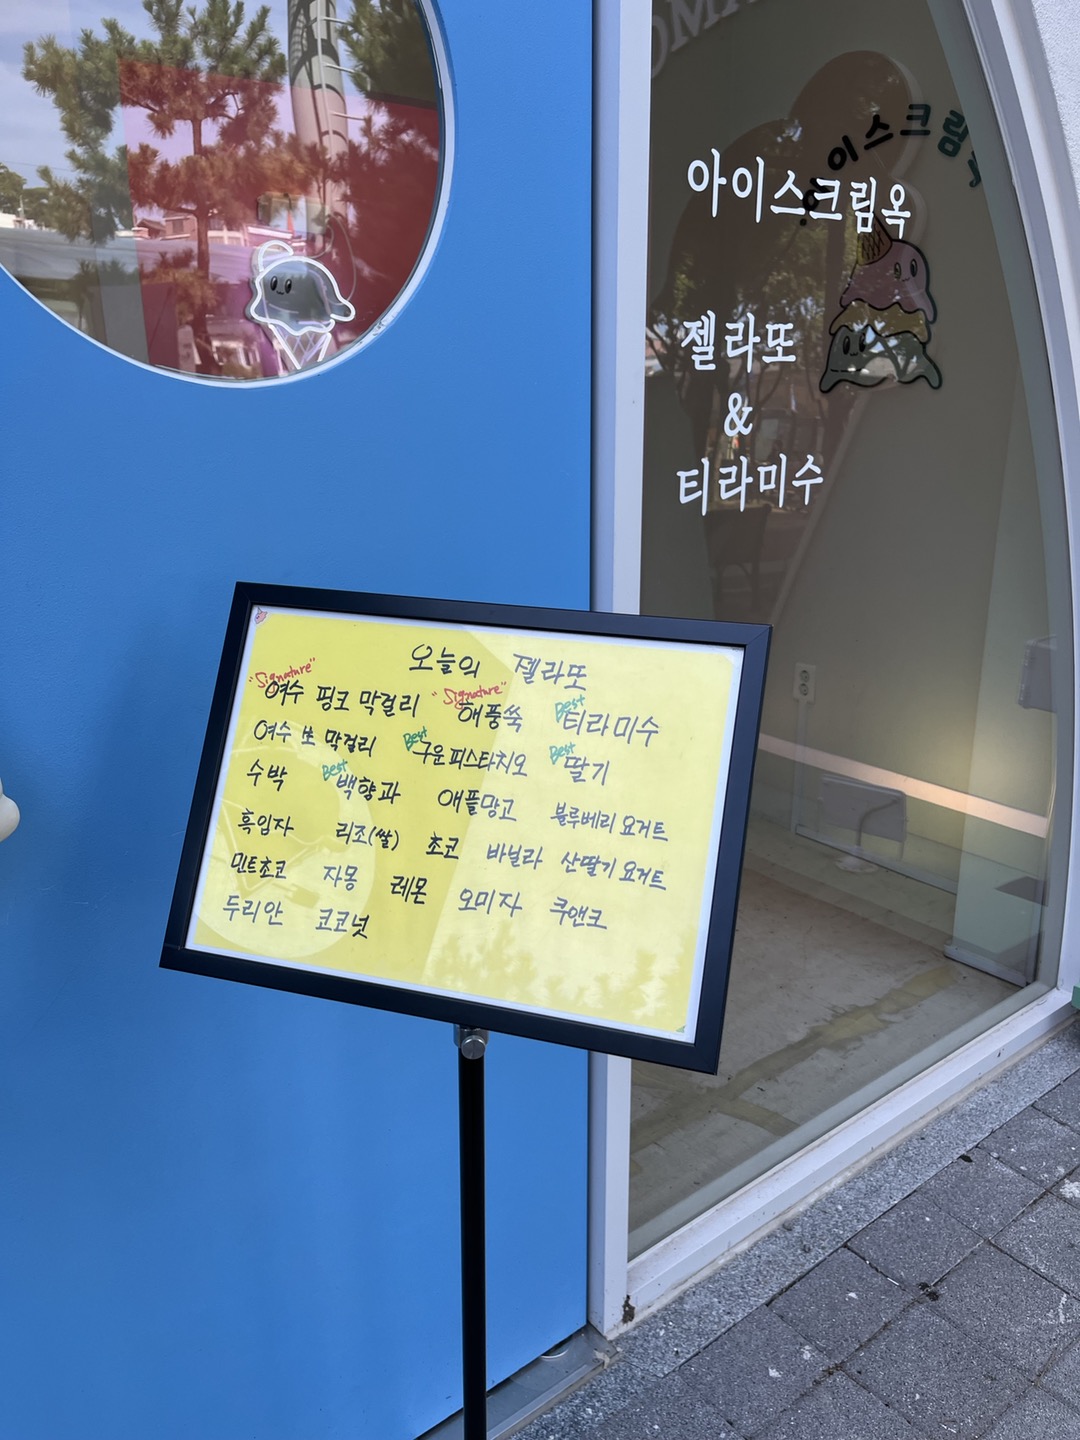 아이스크림
아이스크림옥
젤라또
&
티라미수
오늘의 젤라또
"Signature" "Signature" Best
여수 핑크 막걸리 해풍쑥 티라미수
Best Best
여수 生 막걸리 구운피스타치오 딸기
Best
수박 백향과 애플망고 블루베리 요거트
흑임자 리조(쌀) 초코 바닐라 산딸기 요거트
민트초코 자몽 레몬 오미자 쿠앤크
두리안 코코넛